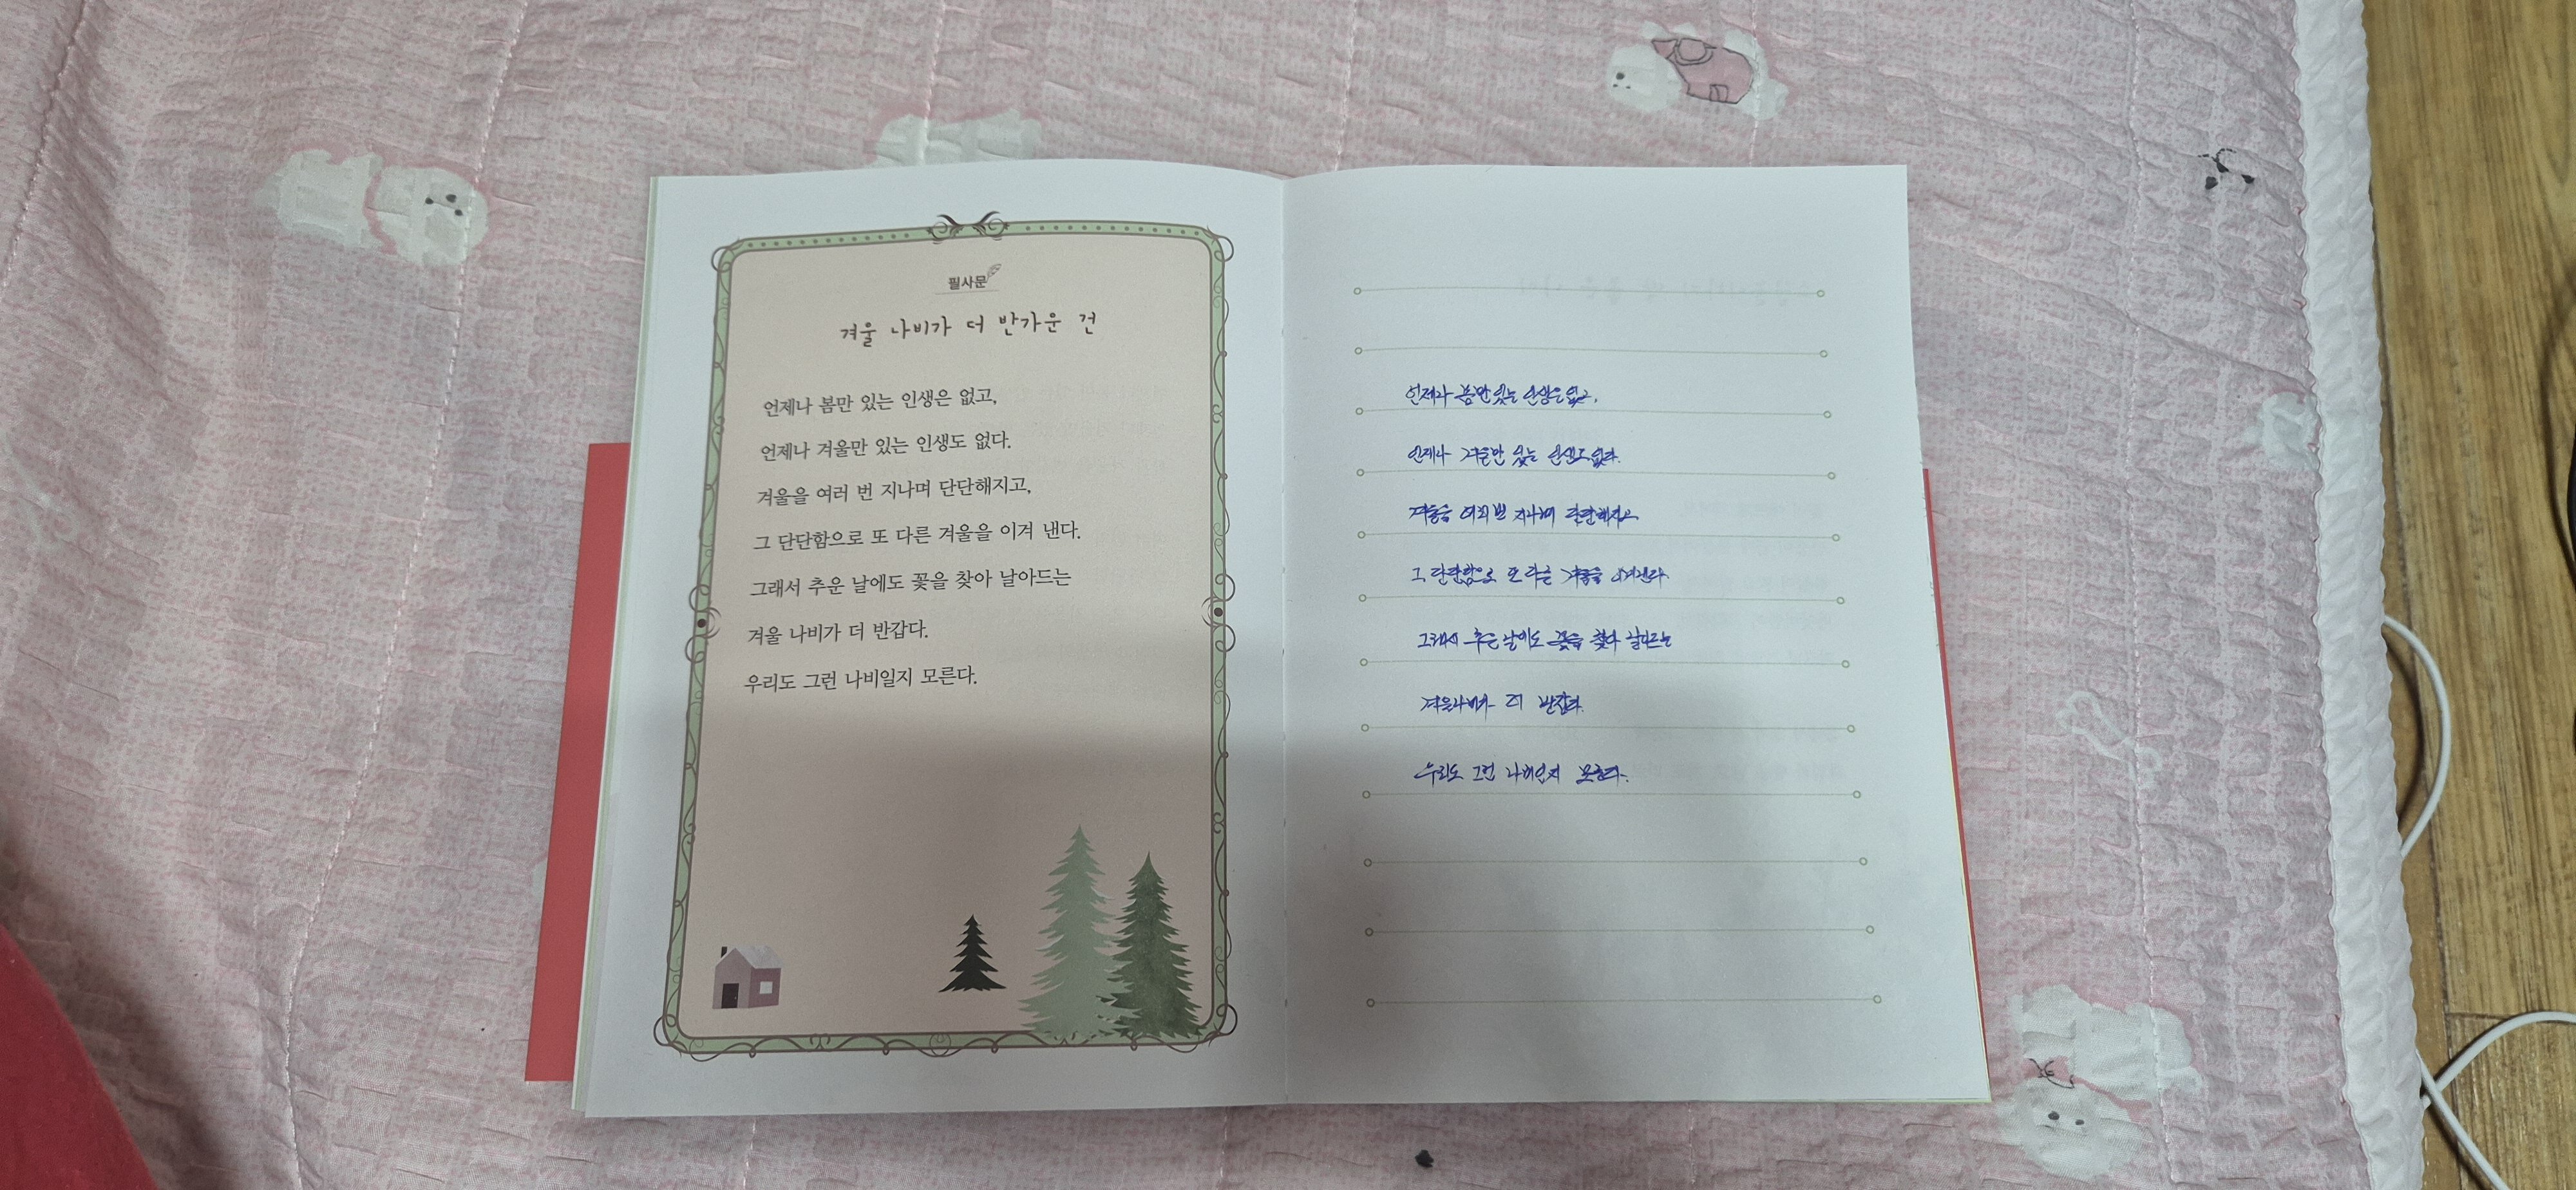 필사문
겨울 나비가 더 반가운 건
언제나 봄만 있는 인생은 없고,
언제나 겨울만 있는 인생도 없다.
겨울을 여러 번 지나며 단단해지고,
그 단단함으로 또 다른 겨울을 이겨 낸다.
그래서 추운 날에도 꽃을 찾아 날아드는
겨울 나비가 더 반갑다.
우리도 그런 나비일지 모른다.
언제나 봄만 있는 인생은 없고,
언제나 겨울만 있는 인생도 없다.
겨울을 여러 번 지나며 단단해지고
그 단단함으로 또 다른 겨울을 이겨낸다.
그래서 추운 날에도 꽃을 찾아 날아드는
겨울 나비가 더 반갑다.
우리도 그런 나비일지 모른다.